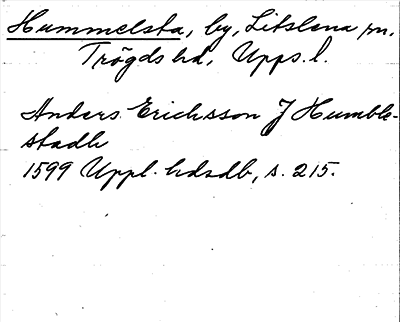 Hummelsta, by, Litslena sn.
Trögds hd, Upps. l.
Anders Erichsson J Humble-
stadh
1599 Uppl. hdsdb, s. 215.